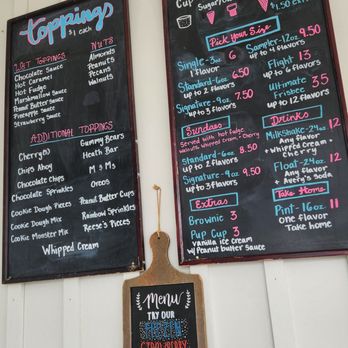 Toppings
$1 each
Wet Toppings
Chocolate Sauce
Hot Caramel
Hot Fudge
Marshmallow Sauce
Peanut Butter Sauce
Pineapple Sauce
Strawberry Sauce
Nuts
Almonds
Peanuts
Pecans
Walnuts
Additional Toppings
Cherry(s)
Chips Ahoy
Chocolate Chips
Chocolate Sprinkles
Cookie Dough Pieces
Cookie Dough Mix
Cookie Monster Mix
Gummy Bears
Heath Bar
M & M's
Oreos
Peanut Butter Cups
Rainbow Sprinkles
Reese's Pieces
Whipped Cream
Cup
Sugar
$1.50
Pick Your Size
Single-3oz 6
1 Flavor
Standard-6oz 6.50
up to 2 flavors
Signature-9oz 7.50
up to 3 flavors
Sampler-12oz 9.50
up to 4 flavors
Flight 13
up to 6 flavors
Ultimate Frisbee 35
up to 12 flavors
Sundaes
Served with hot fudge
walnuts, whipped cream, & Cherry
Standard-6oz 8.50
up to 2 flavors
Signature-9oz 9.50
up to 3 flavors
Extras
Brownie 3
Pup Cup 3
Vanilla ice cream
w/ Peanut butter sauce
Drinks
Milkshake-24oz 12
Any flavor
+ Whipped cream +
Cherry
Float-24oz 12
Any flavor
+ Avery's Soda
Take Home
Pint-16oz 11
one flavor
Take home
Menu
TRY OUR
FROZEN
STRAWBERRY